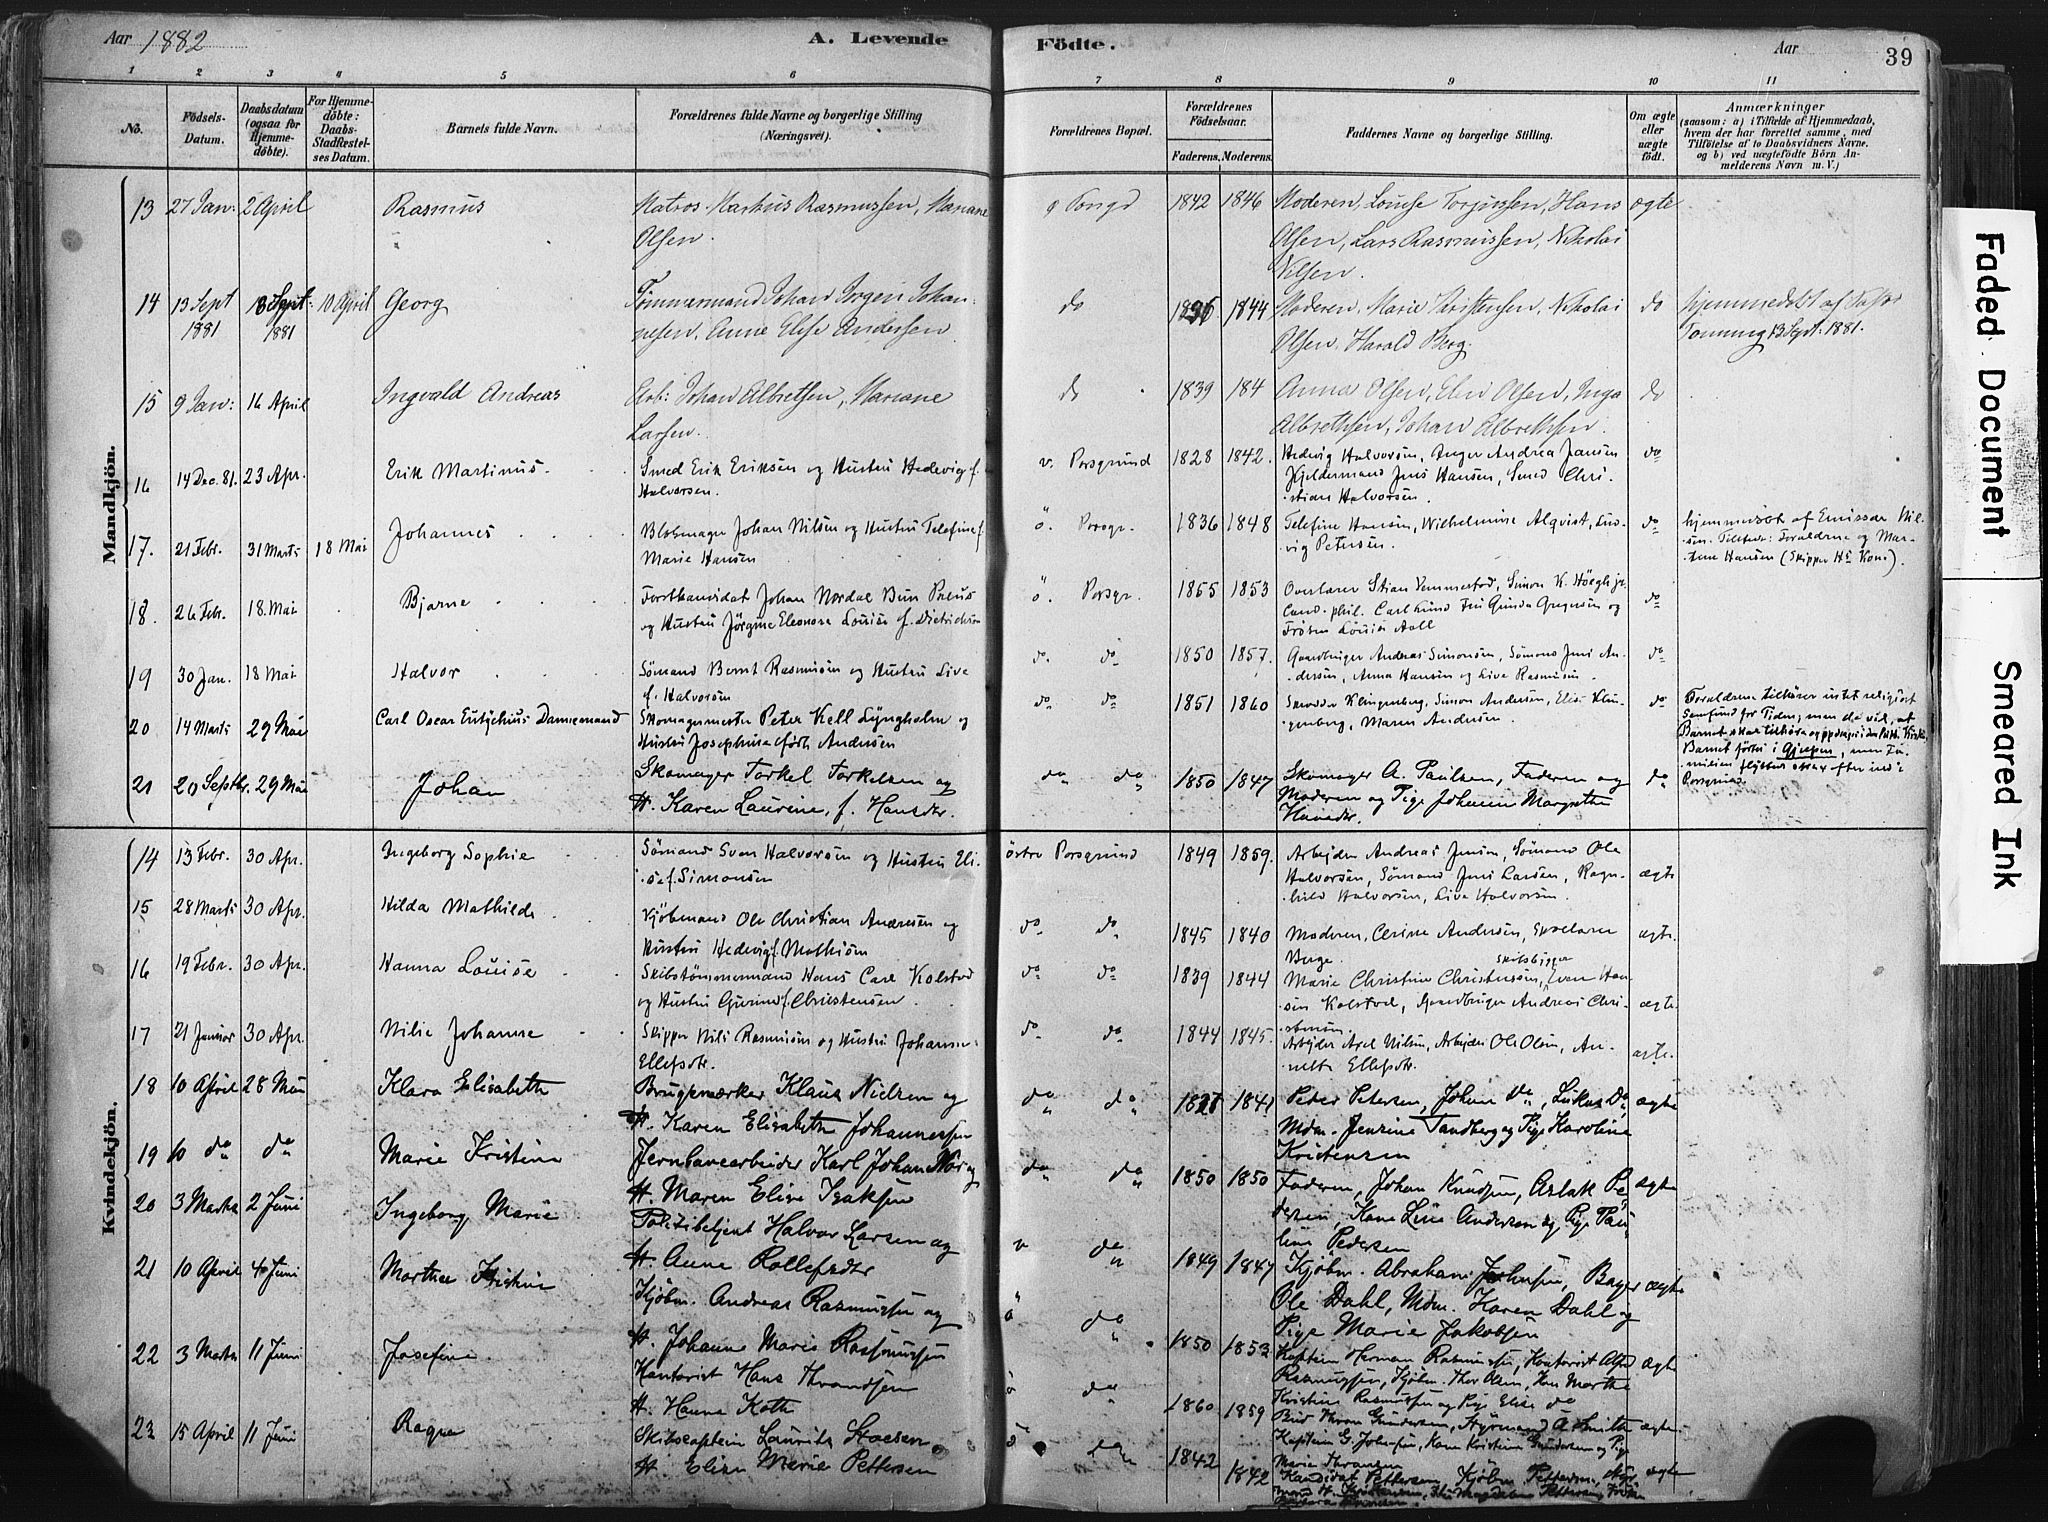 Aar 1882
A. Levende
Födte.
Aar
39
1 2 3 4 5 6 7 8 9 10 11
No.
Födsels-
Datum.
Daabsdatum
(ogsaa for
Hjemme-
döbte).
For Hjemme-
döbte:
Daabs-
Stadfæstel-
ses Datum.
Barnets fulde Navn.
Forældrenes fulde Navne og borgerlige Stilling
(Næringsvei).
Forældrenes Bopæl.
Forældrenes
Födselsaar.
Faderens. Moderens.
Faddernes Navne og borgerlige Stilling.
Om ægte
eller
uægte
födt.
Anmærkninger
(saasom: a) i Tilfælde af Hjemmedaab,
hvem der har forrettet samme, med
Tilföielse af to Daabsvidners Navne.
og b) ved uægtefödte Börn An-
melderens Navn m. V.)
Mandkjön.
13 27 Jan: 2 April Rasmus Matros Markus Rasmussen, Mariane 1842 1846 Moderen, Louise Torjussen, Hans ægte
Olsen. Olsen, Lars Rasmussen, Nikolai
Nilsen.
14 13 Sept 13 Sept: 10 April Georg Tømmermand Johan Jørgen Johan- do 1844 Moderen, Marie Christensen, Nikolai do hjemmedøbt af
1881 1881 nesen, Anne Elise Andersen Olsen, Harald Berg. 13 Sept. 1881.
15 9 Jan: 16 April Ingvald Andreas Arb: Johan Albretsen, Mariane do 1839 184 Anna Olsen, Elen Olsen, Inga do
Larsen. Albrethsen, Johan Albrethsen.
16 14 Dec. 81. 23 Apr. Erik Martinus Smed Erik Eriksen og Hustru Hedevig f. v. Porsgrund 1828 1842. Hedvig Halvorsen, Andrea Jansen do
Halvorsen. Jens Hansen, Smed Chri-
stian Halvorsen.
17. 21 Febr. 31 Marts 18 Mai Johannes Johan Nilsen og Hustru Telefine f. ö. Porsgr. 1836 1848 Telefine Hansen, Wilhelmine Alqvist, Lud- do hjemmedöbt af Emissær Nil-
Marie Hansen vig Petersen. sen. Forældrene og Mar-
tine Hansen (Skipper Hs Kone).
18. 26 Febr. 18. Mai Bjarne Forstkandidat Johan Nordal Brun Preus ö. Porsgr. 1855 1853 Overlærer Stian Vemmestad, Simon K. Höegh jr. do
og Hustru Jörgine Eleonore Louise f. Dietrichson Cand. phil. Carl Lund Gunda Gregersen og
Fröken Louise Aall
19 30 Jan. 18 Mai Halvor Sömand Bernt Rasmusen og Hustru Live do. do 1850 1857. Gaardbruger Andreas Simonsen, Sömand Jens An- do
f. Halvorsen dersen, Anna Hansen og Live Rasmusen.
20 14 Marts 29 Mai Carl Oscar Eutychius Dannemand Skomagermester Peter Kell Lyngholm og do do 1851 1860 Skrædder Klingenberg, Simon Andersen, Elise Klin- do Forældrene tilhører intet religiøst
Hustru Josephine född Andersen genberg, Maren Andersen. Samfund for Tiden; men de vil, at
Barnet skal tilhøre og opdrages i den
Barnet födtes i Gjerpen, men Fa-
milien flyttet strax efter ind i
Porsgrund.
21 20 Septbr. 29 Mai Johan Skomager Torkel Torkelsen og do do 1850 1847 Skomager A. Paulsen, Faderen og do
H. Karen Laurine, f. Hansdtr. Moderen og Pige Johanne Margrethe
Hansdtr.
Kvindekjön.
14 13 Febr. 30 Apr. Ingeborg Sophie Sömand Sven Halvorsen og Hustru Eli- östre Porsgrund 1849 1859. Arbejder Andreas Jensen, Sömand Ole ægte
se f. Simonsen Halvorsen, Sömand Jens Larsen, Ragn-
hild Halvorsen, Live Halvorsen.
15 28 Marts 30 Apr. Hilda Mathilde Kjöbmand Ole Christian Andresen og do do 1845 1840 Moderen, Cerine Andersen, ægte.
Hustru Hedevig f. Mathisen Berge.
16 19 Febr. 30 Apr. Hanna Louise Skibstömmermand Hans Carl Kolstad do do 1839 1844 Marie Christine Christensen, Skibsbygger Even Han- ægte.
og Hustru Gurine f. Christensen. sen Kolstad, Gaardbruger Andreas Chri-
stensen.
17 21 Januar 30 Apr. Nilie Johanne Skipper Nils Rasmusen og Hustru Johanne do do 1844 1845. Arbejder Axel Nilsen, Arbejder Ole Olsen, An- ægte.
Ellefsdr. nette Ellefsdr.
18 10 April 28 Mai Klara Elisabeth Klaus Nielsen og do do 1841 Peder Petersen, Johan do, Lukas Do ægte
H. Karen Elisabeth Johannessen Mdm. Jensine Tandberg og Pige Karoline
Kristensen
19 10 do do Marie Kristine Jernbanearbeider Karl Johan og do do 1850 1850 Faderen, Johan Knudsen, Aslak Pe- ægte
H. Maren Elise Isaksen dersen, Kone Line Andersen og Pige Pau-
line Pedersen
20 3 Marts 2 Juni Ingeborg Marie Politibetjent Halvor Larsen og v do 1849 1847 Kjöbm. Abraham Johnsen, Bager ægte
H. Anne Rollefsdtr Ole Dahl, Mdm. Karen Dahl og
Pige Marie Jakobsen
21 10 April 4 Juni Marthe Kristine Kjöbm. Andreas Rasmussen og ö do 1850 1853 Kaptein Herman Rasmussen, Kontorist Alfred ægte
H. Johanne Marie Rasmussen Rasmussen, Kjöbm. Thor Olsen, Kone Marthe
Kristine Rasmussen og Pige Elise do
22 3 Marts 11 Juni Josefine Kontorist Hans Throndsen ö do 1860 1859 Bud Thron Gundersen, Styrmand A. Smith ægte
H. Hanna Koth Kaptein G. Johnsen, Kone Kristine Gundersen og Pige
Marie Thronsen
23 15 April 11 Juni Ragna Skibscaptein Laurits Stoesen ö do 1842 1842 Kandidat Pettersen, Kjöbm. Pettersen, Styr- ægte
H. Elise Marie Pettersen mand H. Kristiansen, Magdalene Pettersen, Fröken
Faded Document
Smeared Ink